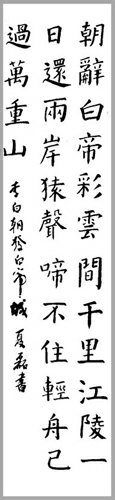 朝辭白帝彩雲間千里江陵一
日還兩岸猿聲啼不住輕舟已
過萬重山
李白朝發白帝城 夏磊書